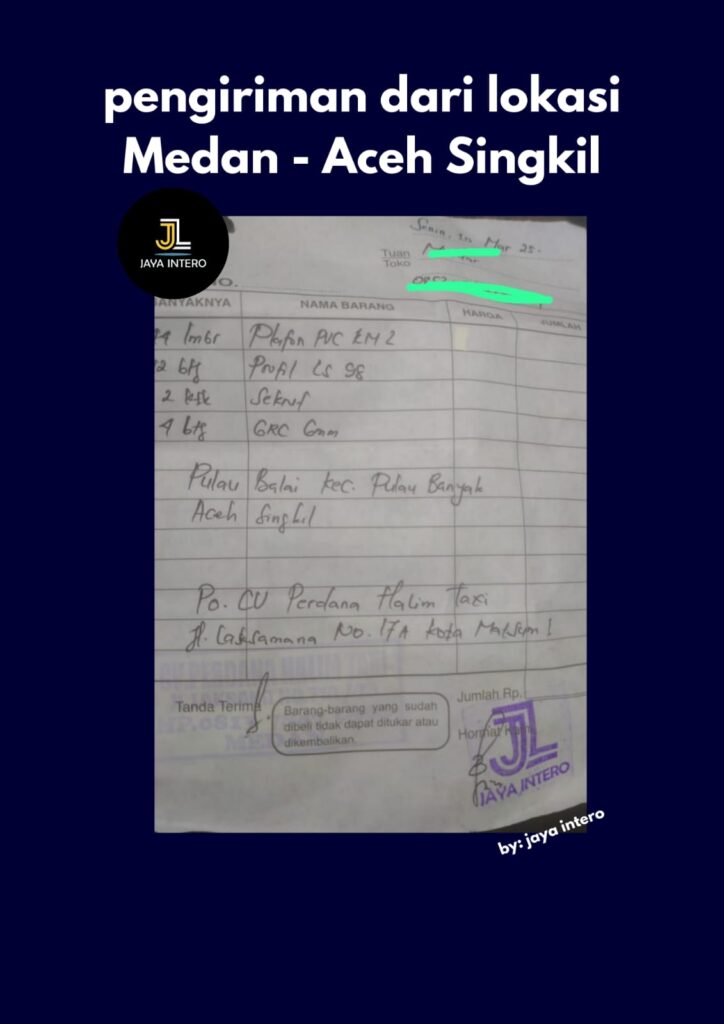 pengiriman dari lokasi
Medan - Aceh Singkil
JL
JAYA INTERO
Senin, Mar 25.
Tuan
Toko
NO.
BANYAKNYA NAMA BARANG HARGA JUMLAH
4 lmbr Plafon PVC
2 btg Profil LS 98
2 Sekruf
4 btg GRC 6mm
Pulau Balai kec. Pulau Banyak
Aceh Singkil
Po. CU Perdana Halim Taxi
Jl. Laksamana No. 17A Kota Maksum I
CU PERDANA HALIM TAXI
MEDAN
Tanda Terima
Barang-barang yang sudah
dibeli tidak dapat ditukar atau
dikembalikan.
Jumlah Rp.
Hormat Kami,
JL
JAYA INTERO
by: jaya intero